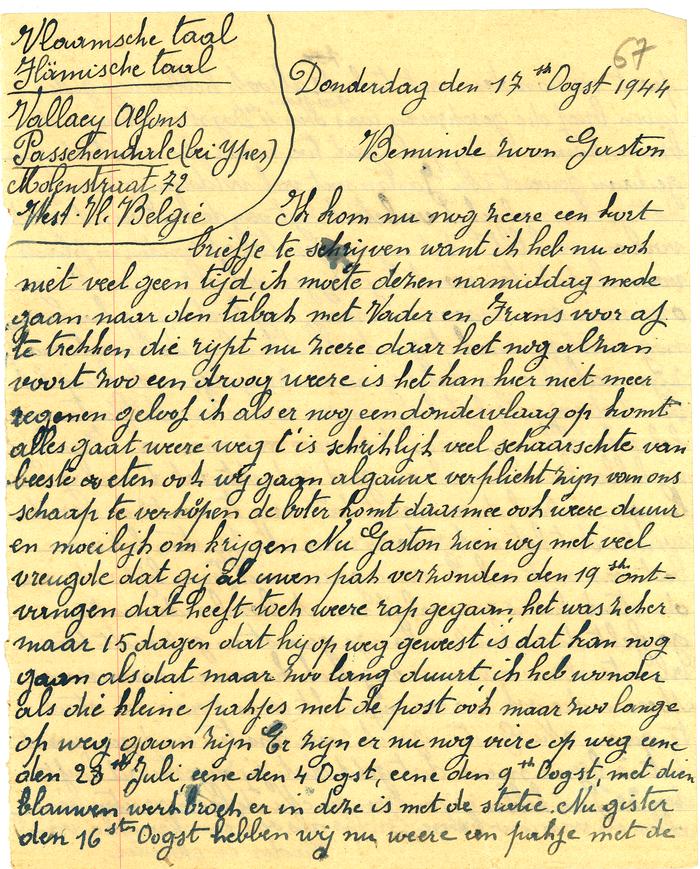 67
Vlaamsche taal
Flämische taal
Vallaey Alfons
Passchendale (bei Ypes)
Molenstraat 72
West. Vl. België
Donderdag den 17 sth Oogst 1944
Beminde zoon Gaston
Ik kom nu nog zeere een kort
briefje te schrijven want ik heb nu ook
niet veel geen tijd ik moete dezen namiddag mede
gaan naar den tabak met Vader en Frans voor af
te trekken die rypt nu zeere daar het nog alzan
voort zoo een droog weere is het kan hier niet meer
regenen geloof ik als er nog een dondervlaag op komt
alles gaat weere weg t'is schriklijk veel schaarschte van
beeste eten ook wij gaan algauwe verplicht zijn van ons
schaap te verkopen de boter komt daarmee ook weere duur
en moeilijk om krijgen Nu Gaston zien wij met veel
vreugde dat gij al uwen pak verzonden den 19 sth ont-
vangen dat heeft toch weere rap gegaan, het was zeker
maar 15 dagen dat hij op weg geweest is, dat kan nog
gaan als dat maar zoo lang duurt ik heb wonder
als die kleine pakjes met de post ook maar zoo lange
op weg gaan zijn Er zijn er nu nog viere op weg eene
den 28 sth Juli, eene den 4 Ogst, eene den 9 th Oogst, met dien
blauwen werkbroek er in deze is met de statie. Nu gister
den 16 sth Oogst hebben wij nu weere een pakje met de